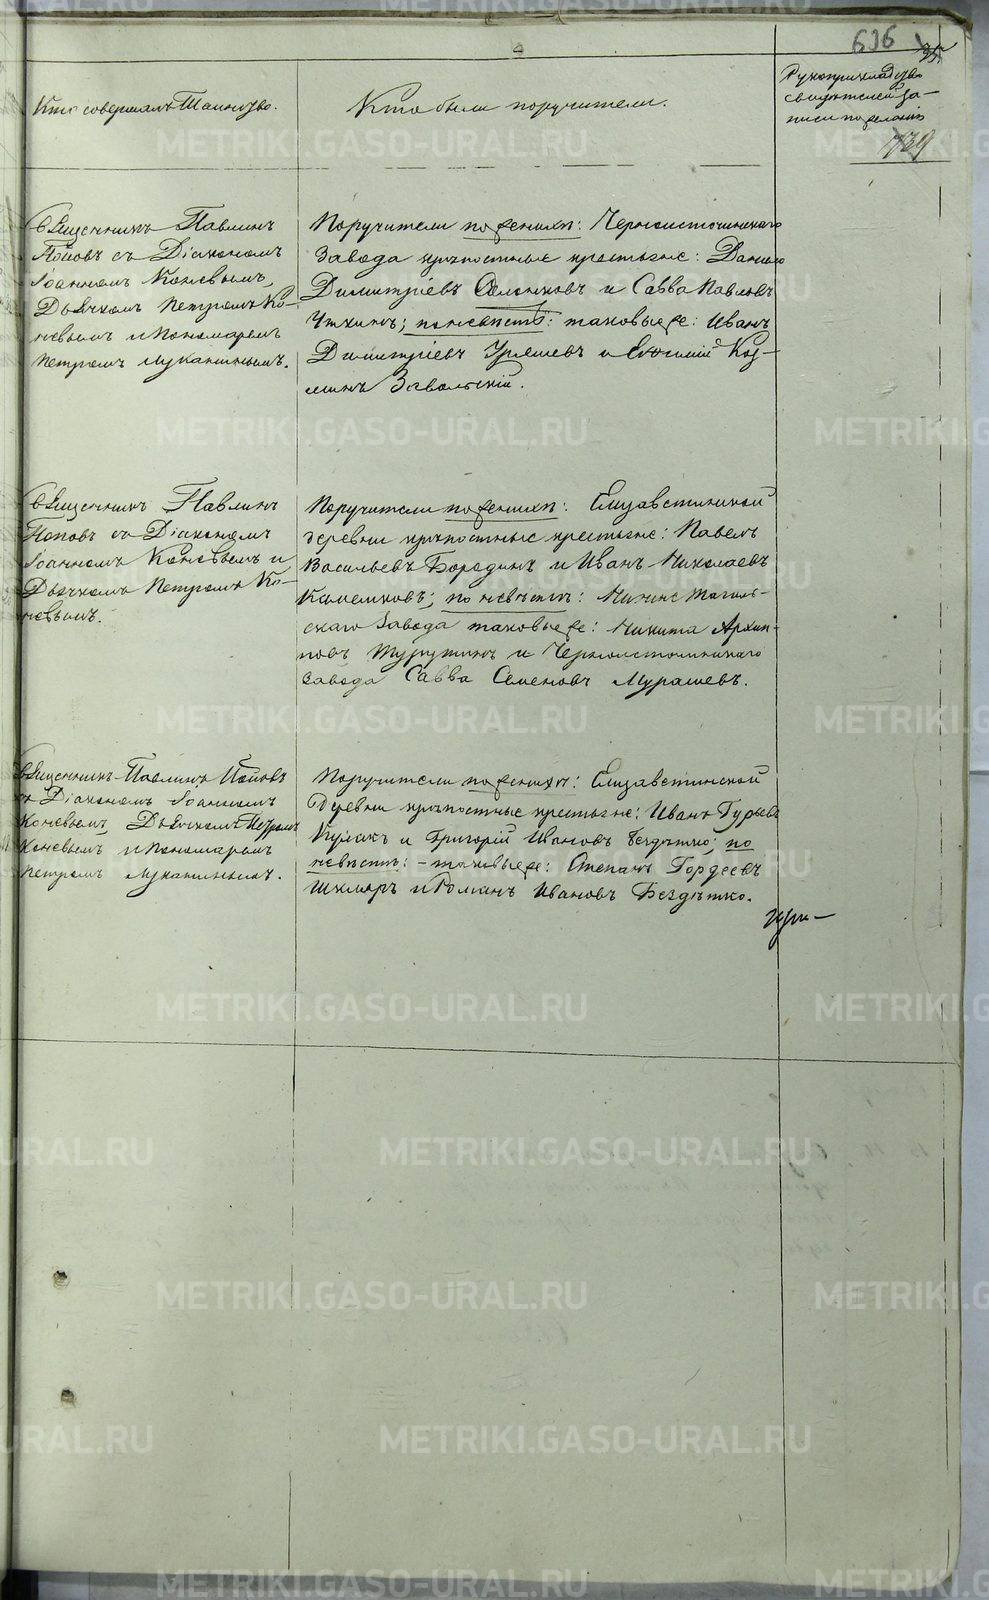 636
35
4
Кто совершалъ Таинство.
Кто были поручители.
Рукоприкладство
свидѣтелей за-
писи по желанію
739
Священникъ Павлинъ
Поповъ съ Діакономъ
Іоанномъ Коневымъ,
Дьячкомъ Петромъ Ко-
невымъ и Пономаремъ
Петромъ Луканинымъ.
Поручители по женихѣ: Черноисточинскаго
Завода крѣпостные крестьяне: Данило
Димитріевъ и Савва Павловъ
Уткинъ; по невѣстѣ: таковые же: Иванъ
Димитріевъ и Евфимій Коз-
минъ
Священникъ Павлинъ
Поповъ съ Діакономъ
Іоанномъ Коневымъ и
Дьячкомъ Петромъ Ко-
невымъ.
Поручители по женихѣ: Елизаветинской
деревни крѣпостные крестьяне: Павелъ
Васильевъ Бородинъ и Иванъ Николаевъ
по невѣстѣ: Нижне Тагиль-
скаго Завода таковые же: Никита Архип-
повъ и Черноисточинскаго
завода Савва Семеновъ Мурашевъ.
Священникъ Павлинъ Поповъ
съ Діакономъ Іоанномъ
Коневымъ, Дьячкомъ Петромъ
Коневымъ и Пономаремъ
Петромъ Луканинымъ.
Поручители по женихѣ: Елизаветинской
деревни крѣпостные крестьяне: Иванъ Гурьевъ
Кулакъ и Григорій Ивановъ Бездѣтко; по
невѣстѣ: - таковые же: Степанъ Гордеевъ
Шкляръ и Романъ Ивановъ Бездѣтко.
METRIKI.GASO-URAL.RU